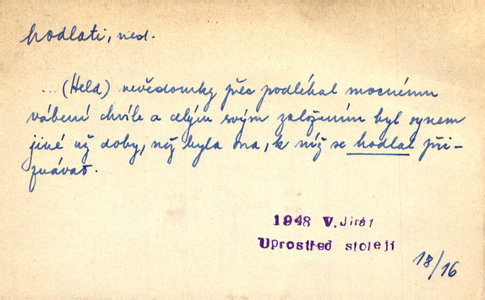 hodlati, ned.
...(Hela) nevědomky přec podléhal mocnému
vábení chvíle a celým svým založením byl synem
jiné už doby, než byla ona, k níž se hodlal při-
znávat.
1948 V. Jirát
Uprostřed století
18/16